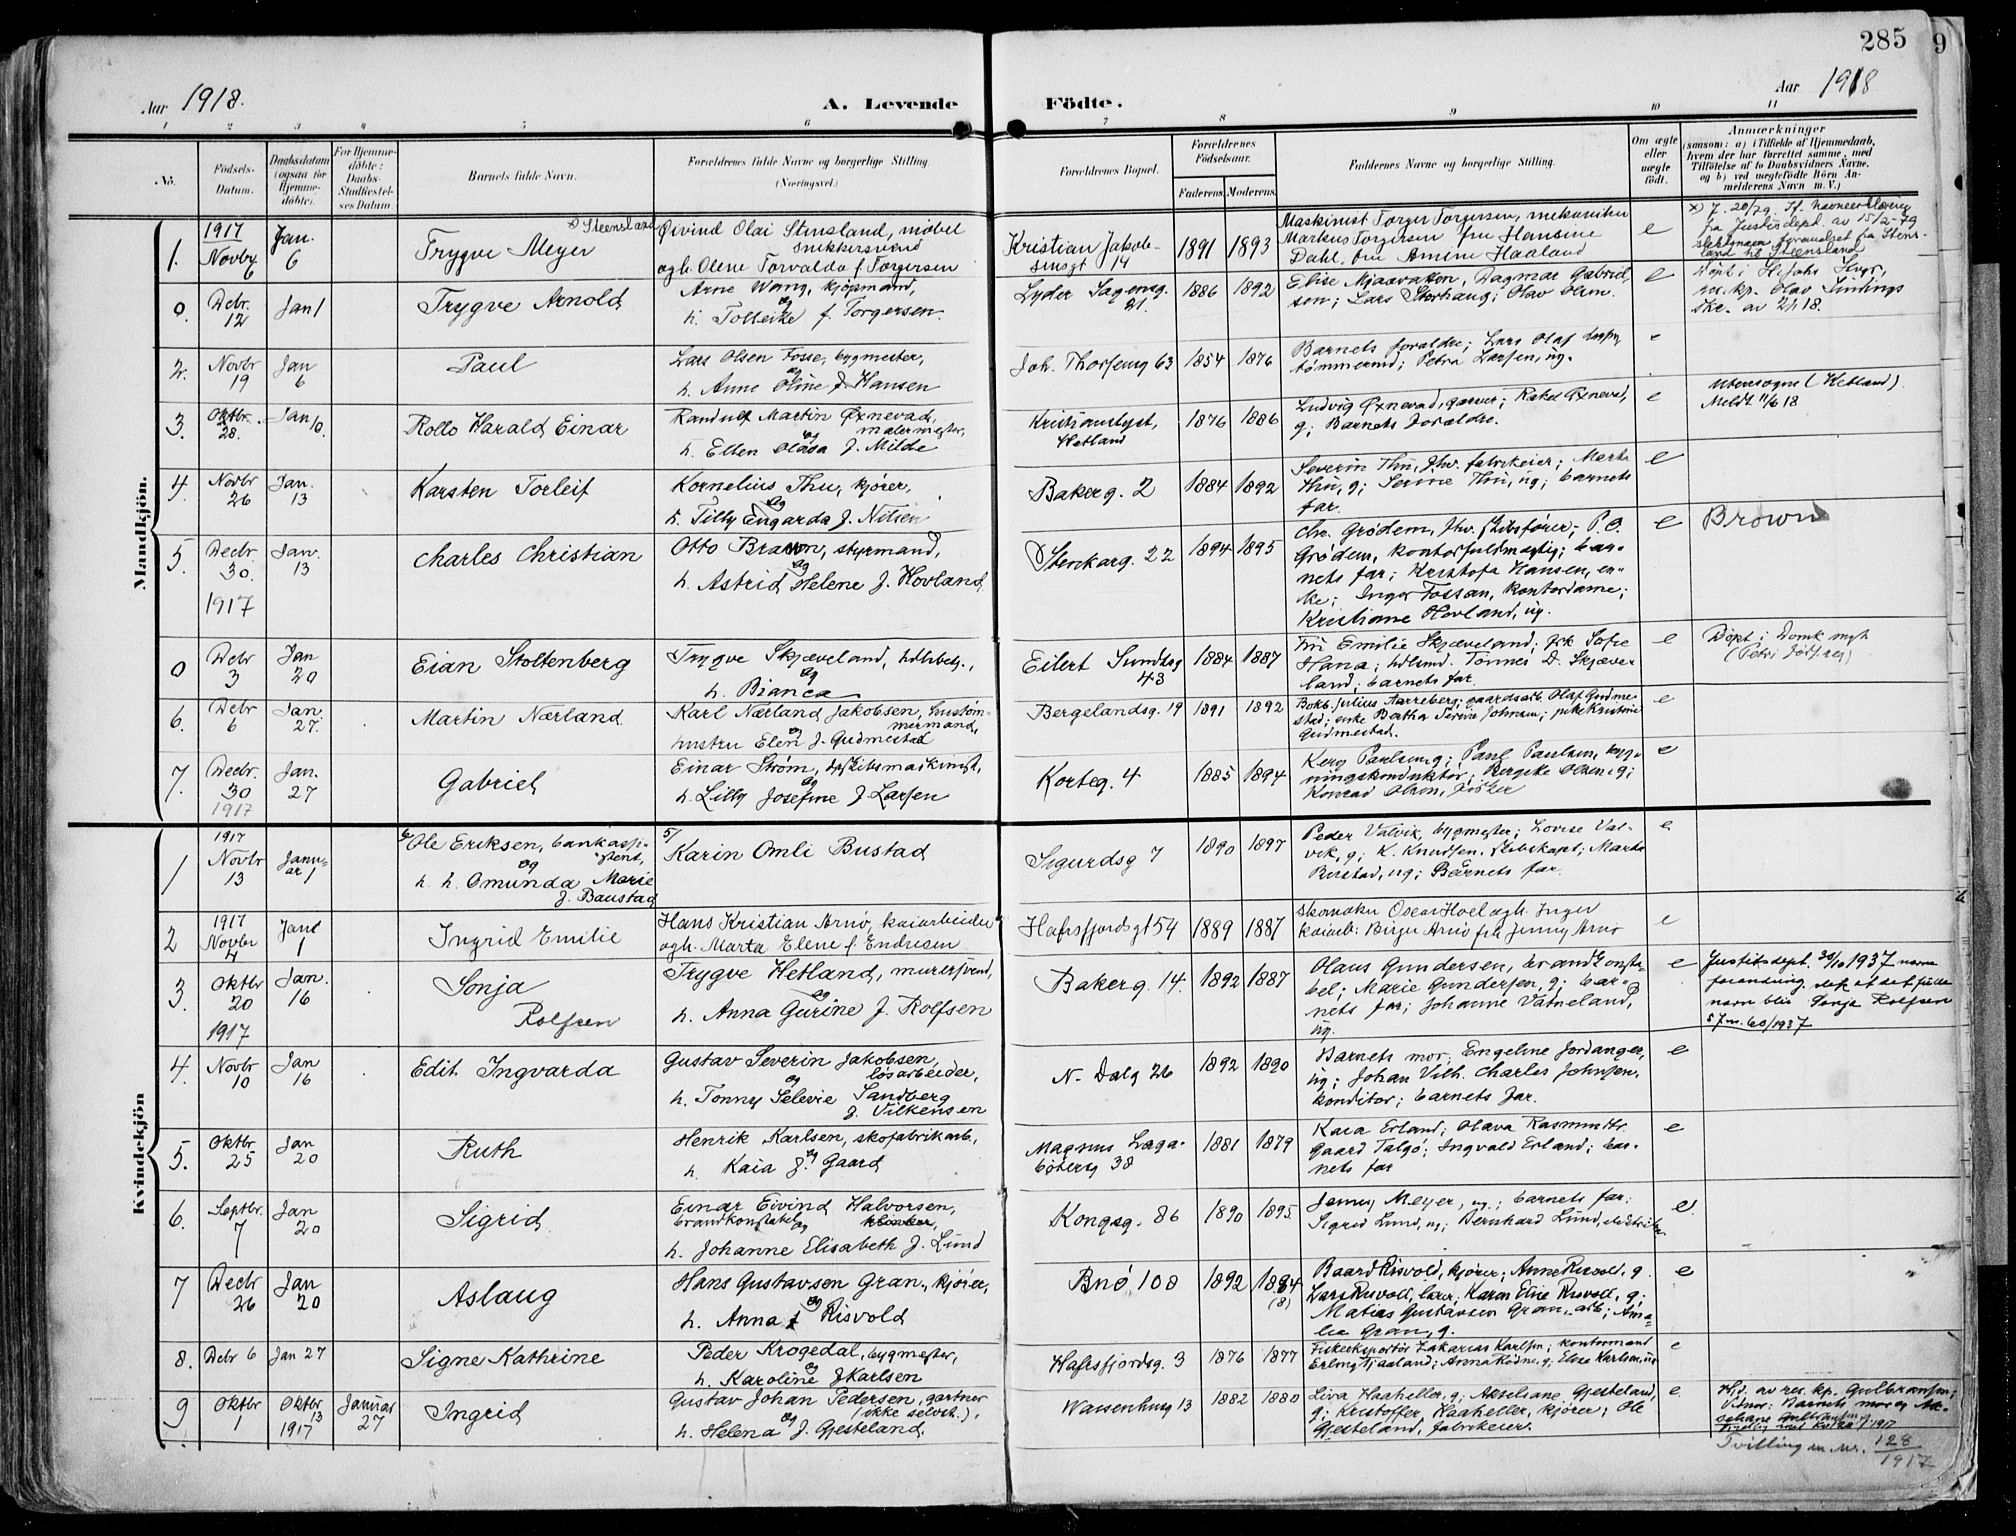 285
9
Aar 1918.
A. Levende
Födte.
Aar 1918
1 2 3 4 5 6 7 8 9 10 11
No.
Födsels-
Datum.
Daabsdatum
(ogsaa for
Hjemme-
döbte).
For Hjemme-
döbte:
Daabs-
Stadfæstel-
ses Datum.
Barnets fulde Navn.
Forældrenes fulde Navne og borgerlige Stilling.
(Næringsvei.)
Forældrenes Bopæl.
Forældrenes
Födselsaar.
Faderens. Moderens.
Faddernes Navne og borgerlige Stilling.
Om ægte
eller
uægte
födt.
Anmærkninger
(saasom: a) i Tilfælde af Hjemmedaab,
hvem der har forrettet samme, med
Tilföielse af to Daabsvidners Navne.
og b) ved uægtefödte Börn An-
melderens Navn m. V.)
Mandkjön.
1.
1917
Novbr
6
Jan.
6
Trygve Meyer
x) Steensland
Øivind Olai Stensland, møbel
snikkersvend
ogh. Olene Torvalda f. Torgersen
Kristian Jakob-
sensgt 14
1891 1893
Maskinist Torger Torgersen, mekaniker
Markus Torgersen fru Hansine
Dahl, fru Amine Haaland
e
x) J. 20/79. Jf. navneendring
fra Justisdept. av 15/2-79
slektsnavn forandret fra Stens-
land til Steensland
0.
Debr.
12
Jan 1
Trygve Arnold
Arne Wang, kjøpmand,
og
h. Tolleike f. Torgersen.
Lyder Sagensg.
21.
1886 1892
Elise Mjaavatten, Dagmar Gabriel-
sen; Lars Storhaug; Olav Olsen.
e
Døpt i
res. kp. Olav Sindings
2.
Novbr
19
Jan
6
Paul
Lars Olsen Fosse, bygmester,
og
h. Anne Oline f. Hansen
Joh. Thorsensg 63
1854 1876
Barnets foraldre; Lars Olaf
tømmermd; Petra Larsen, ug.
e
3.
Oktbr.
28.
Jan 6.
Rollo Harald Einar
Randulf Martin Øxnevad,
malermester,
og
h. Ellen Olasa f. Milde
Kristianslyst,
Hetland
1876 1886
Ludvig Øxnevad, garver; Rakel Øxnevad,
g; Barnets Forældre.
e
Utensogns (Hetland).
Meldt 11/6 18
4.
Novbr
26
Jan.
13
Karsten Torleif
Kornelius Thu, kjører,
og
h. Tilly Engarda f. Nilsen
Bakerg. 2
1884 1892
Severin Thu, fhv. fabrikeier; Marta
Thu, g; Serine Thu, ug; barnets
far.
e
5.
Decbr.
30.
1917
Jan.
13
Charles Christian
Otto Brawn, styrmand,
og
h. Astrid Helene f. Hovland
Stenkarg. 22
1894 1895
Chr. Grødem, fhv. skibsfører; P. O.
Grødem, kontorfuldmægtig; bar-
nets far; Kristofa Hansen, en-
ke; Inger Fossan, kontordame;
Kristiane Hovland, ug.
e
Brown
0
Debr
3
Jan
20
Eian Stoltenberg
Trygve Skjæveland, hdlsbetj.,
og
h. Bianca
Eilert Sundtsg
43
1884 1887
Fru Emilie Skjæveland; frk Sofie
Hana; hdlsmd. Tønnes D. Skjæve-
land; barnets far.
e
Døpt i Domk
6.
Debr
6
Jan.
27.
Martin Nærland
Karl Nærland Jakobsen, hustøm-
mermand,
og
hustru Elen f. Gudmestad
Bergelandsg. 19
1891 1892
Bokb. Julius Aarreberg; gaardsarb. Olaf Gudme-
stad; enke Bertha Serine Johnsen; pike Kristine
Gudmestad.
e
7.
Decbr.
30
1917
Jan.
27
Gabriel
Einar Strøm, dpskibsmaskinist,
og
h. Lilly Josefine f. Larsen
Korteg. 4
1885 1894
Paul Paulsen, byg-
ningskonduktør; Bergitte Olsen, g;
Konrad Olsen, fisker
e
Kvindekjön
1
1917
Novbr
13
Janu-
ar 1
6/ Ole Eriksen, bankassi-
stent,
og
h. h. Omunda Marie
f. Baustad
5/
Karin Omli Bustad
Sigurdsg 7
1890 1897
Peder Valvik, bygmester; Lovise Val-
vik, g; K. Knudsen, skibskapt; Marta
Bustad, ug; Barnets far.
e
2
1917
Novbr
4
Jan
1
Ingrid Emilie
Hans Kristian Arnø, kaiarbeider
ogh. Marta Elene f. Endresen
Hafrsfjordsgt 54
1889 1887
Skomaker Oscar Hoel ogh. Inger
kaiarb. Birger Arnø frk Jenny Arnø
e
3.
Oktbr
20
1917
Jan.
16
Sonja
Rolfsen
Trygve Hetland, murersvend,
og
h. Anna Gurine f. Rolfsen
Bakerg. 14.
1892 1887
Olaus Gundersen, brandkonsta-
bel; Marie Gundersen, g; bar-
nets far; Johanne Vatneland,
ug.
e
Justitsdept. 30/10 1937 navne
forandring, derh. at det fulde
navn blir Sonja Rolfsen
s J.nr. 60/1937
4.
Novbr
10
Jan
16
Edit Ingvarda
Gustav Severin Jakobsen,
løsarbeider,
og
h. Tonny Selevie Sandberg
f. Vilkensen
N. Dalg 26
1892 1890
Barnets mor; Engeline Jordanger,
ug; Johan Vilh. Charles Johnsen,
konditor; barnets far.
e
5.
Oktbr
25
Jan
20
Ruth
Henrik Karlsen, skofabrikarb,
og
h. Kaia f. Gaard
Magnus Laga-
bøtersg 38
1881 1879
Kaia Erland; Olava Rasmusdtr.
Gaard Talgø; Ingvald Erland; bar-
nets far
e
6.
Septbr.
7
Jan
20
Sigrid
Einar Eivind Halvorsen,
brandkonstabel,
og
h. Johanne Elisabeth f. Lund
Kongsg. 86
1890 1895
Jenny Meyer, ug; barnets far;
Sigrid Lund, ug; Bernhard Lund, elektriker.
e
7
Decbr
26
Jan
20
Aslaug
Hans Gustavsen Gran, kjører,
og
h. Anna f. Risvold
Bnø 108
1892 1884
(8)
Baard Risvold, kjører; Anne Risvold, g.
Lars Risvold, lærer; Karen Elise Risvold, g;
Matias Gustavsen Gran, arb; Ama-
lia Gran, g.
e
8.
Debr 6
Jan 27
Signe Kathrine
Peder Krogedal, bygmester,
og
h. Karoline f Karlsen
Hafrsfjordsg. 3
1876 1877
Fiskeeksportør Zakarias Karlsen; kontormand
Erling Tjaaland; Anna Rødne, g; Elise Karlsen, ug
e
9
Oktbr
1
Oktbr
13
1917
Januar
27
Ingrid
Gustav Johan Pedersen, gartner
(ikke selvst.),
og
h. Helena f. Gjesteland.
Waisenhusg 13
1882 1880
Liva Haaheller, g; Akseliane Gjesteland,
g; Kristoffer Haaheller, kjører; Ole
Gjesteland, fabrikeier.
e
Hjd. av res. kp. Gulbransen;
Vidner: Barnets mor og Ak-
seliane
Tvilling m. Nr. 128
1917